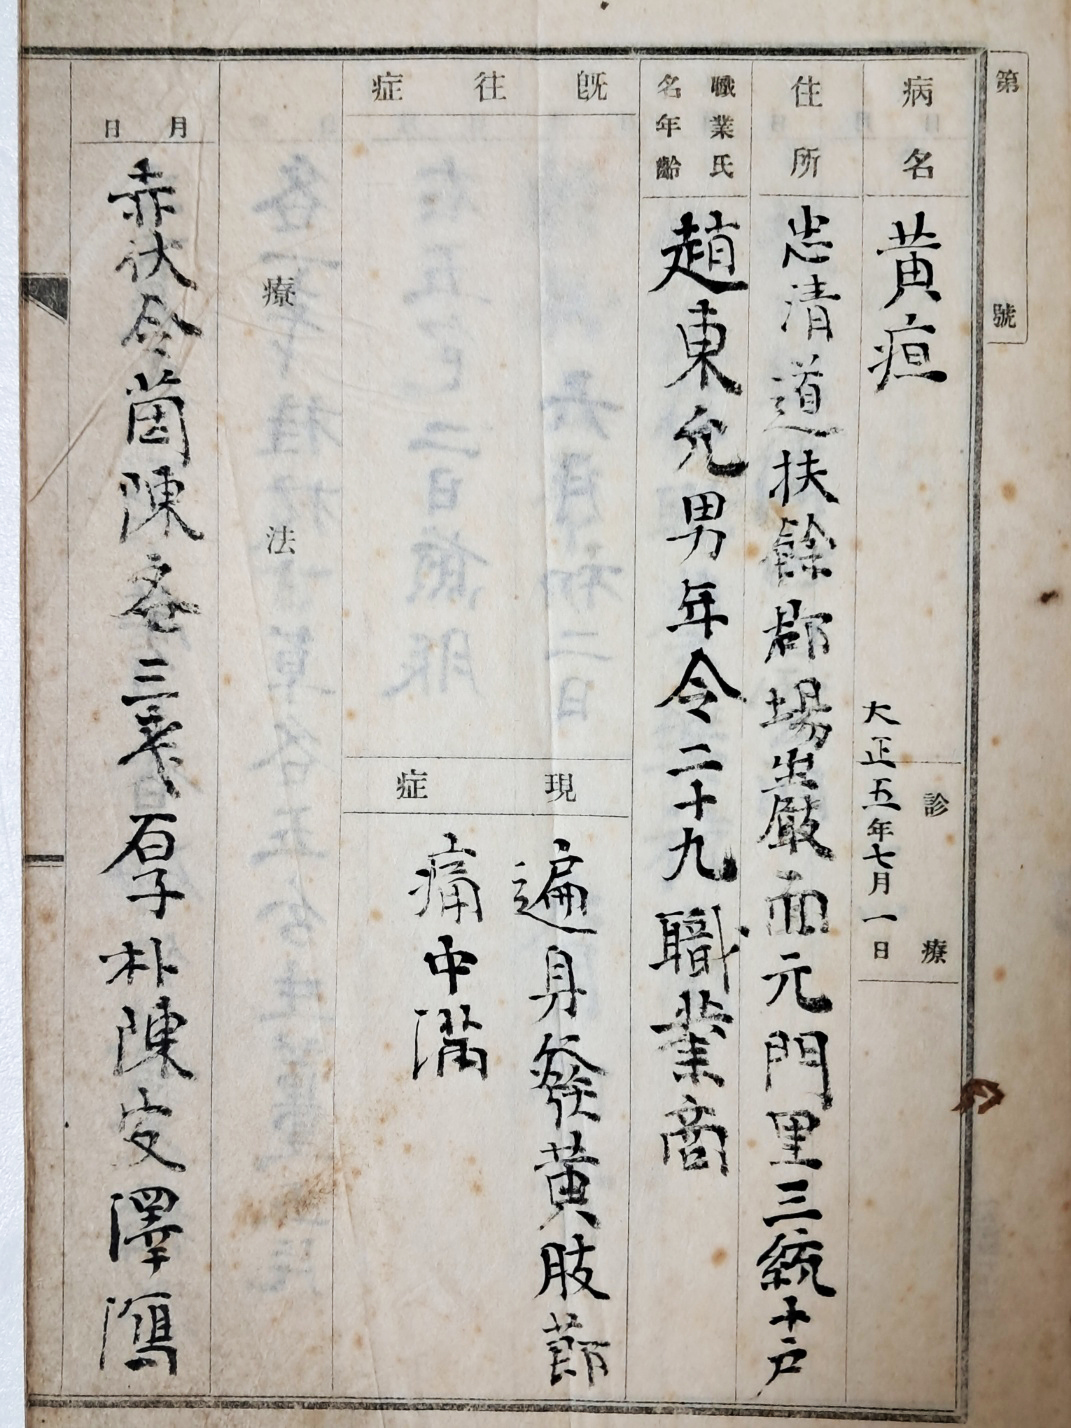 第 號
病名
黃疸
大正五年七月一日
診療
住所
忠清道扶餘郡場岩嚴面元門里三統十戶
職業氏
名年齡
趙東允男年令二十九職業商
旣往症
現症
遍身發黃肢節
痛中滿
療法
月日
赤茯令茵陳各三戔石子朴陳皮澤瀉